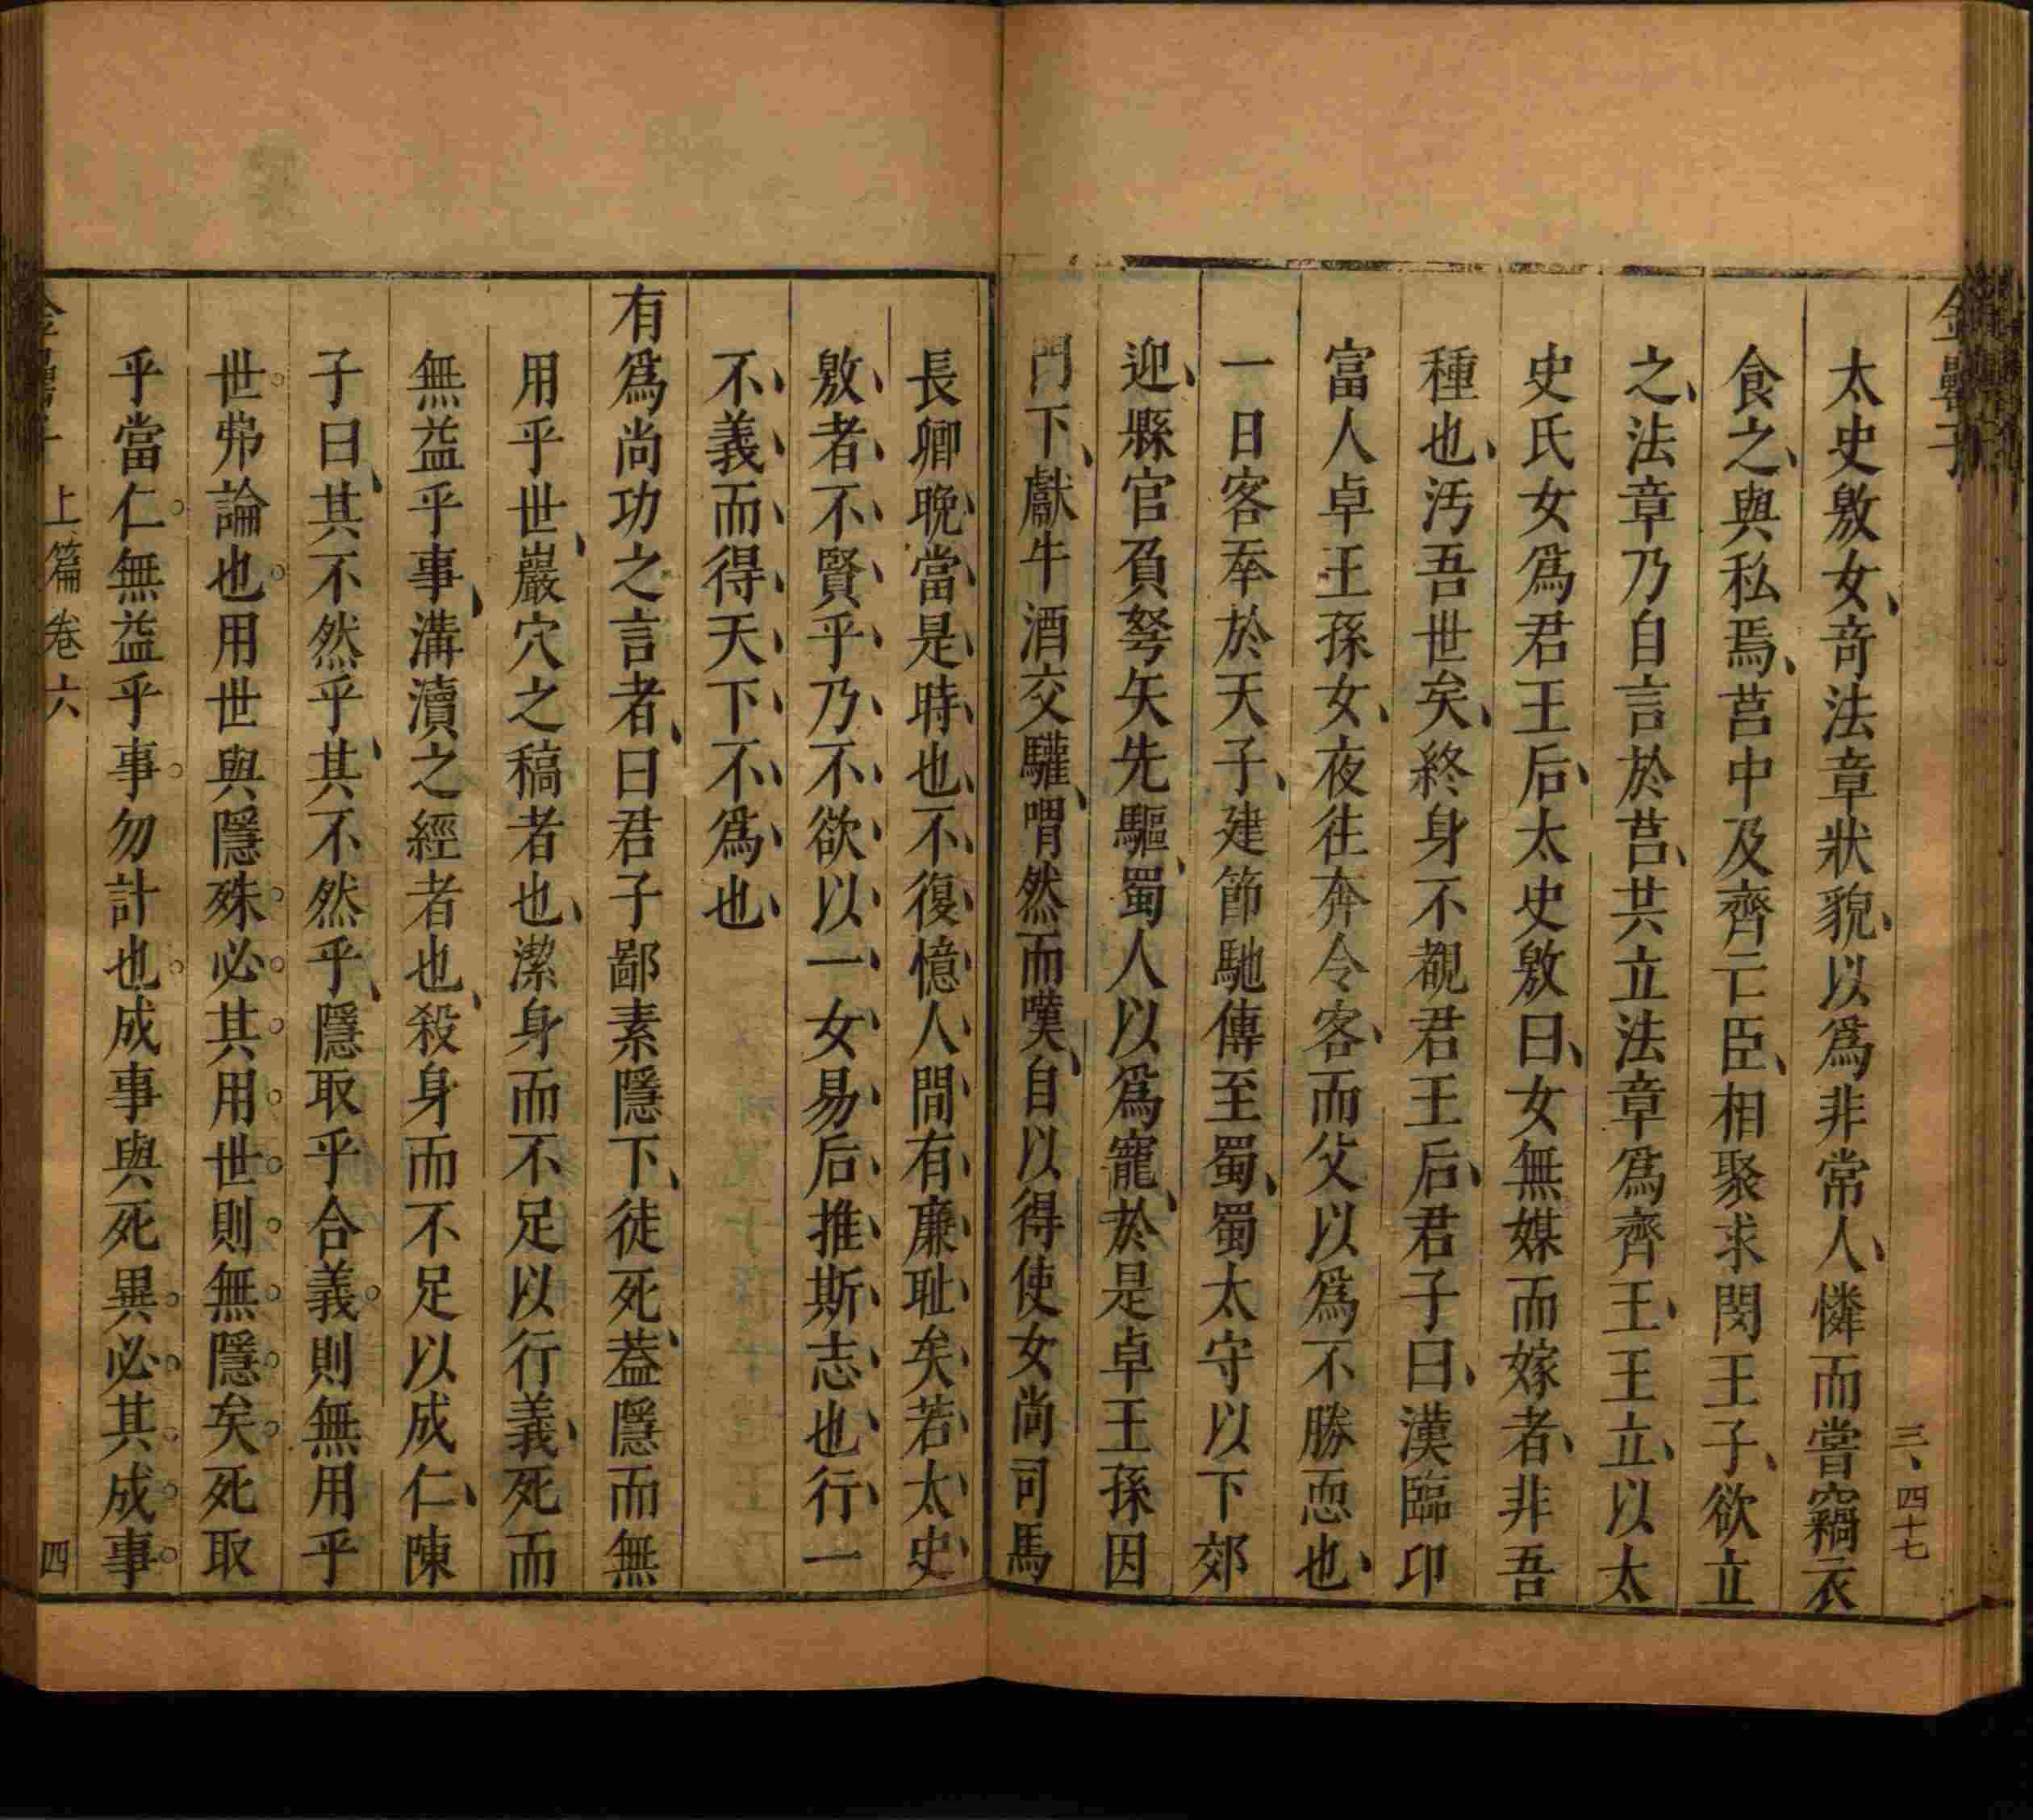 金罍子
三、四十七
太史敫女、奇法章狀貌、以爲非常人、憐而嘗竊衣
食之、與私焉、莒中及齊亡臣、相聚求閔王子、欲立
之、法章乃自言於莒、共立法章爲齊王、王立、以太
史氏女爲君王后、太史敫曰、女無媒而嫁者、非吾
種也、汚吾世矣、終身不覩君王后、君子曰、漢臨卭
富人卓王孫女、夜往奔令客、而父以爲不勝恧也、
一日客奉於天子、建節馳傳至蜀、蜀太守以下郊
迎、縣官負弩矢先驅、蜀人以爲寵、於是卓王孫因
門下、獻牛酒交驩、喟然而嘆、自以得使女尚司馬
長卿晩、當是時也、不復憶人間有廉耻矣、若太史
敫者、不賢乎、乃不欲以一女易后、推斯志也、行一
不義而得天下、不爲也、
有爲尚功之言者、曰君子鄙素隱下、徒死、葢隱而無
用乎世、巖穴之稿者也、潔身而不足以行義、死而
無益乎事、溝瀆之經者也、殺身而不足以成仁、陳
子曰、其不然乎、其不然乎、隱取乎合義則無用乎
世弗論也用世與隱殊必其用世則無隱矣死取
乎當仁無益乎事勿計也成事與死異必其成事
上篇卷六
四